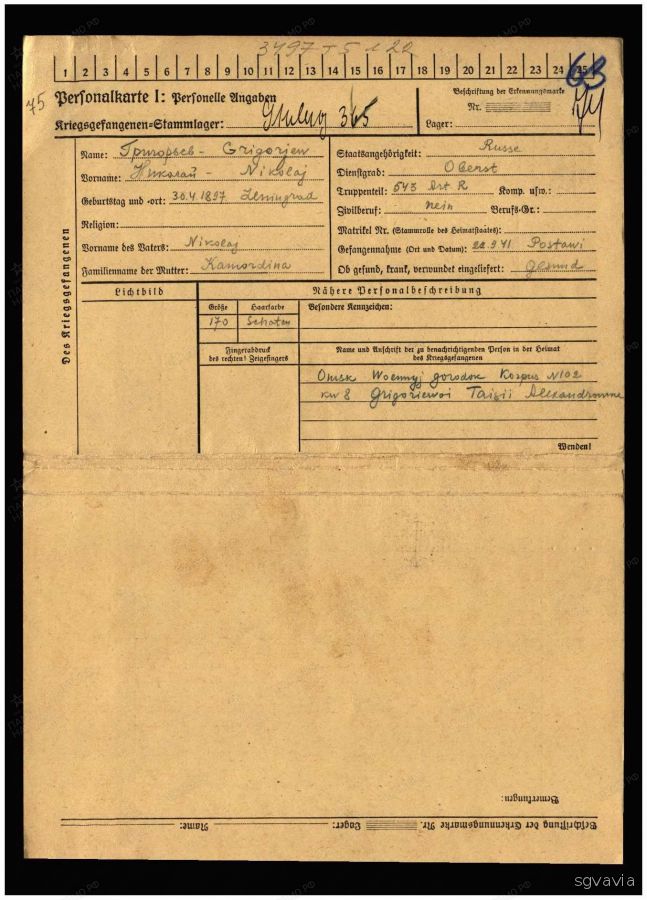 3497
1 2 3 4 5 6 7 8 9 10 11 12 13 14 15 16 17 18 19 20 21 22 23 24 25
63
75
Personalkarte I: Personelle Angaben
Kriegsgefangenen-Stammlager: Stalag 365
Beschriftung der Erkennungsmarke
Nr.
Lager:
Des Kriegsgefangenen
Name: Григорьев - Grigorjew
Vorname: Николай - Nikolaj
Geburtstag und -ort: 30.4.1897 Leningrad
Religion:
Vorname des Vaters: Nikolaj
Familienname der Mutter: Kamordina
Staatsangehörigkeit: Russe
Dienstgrad: Oberst
Truppenteil: 543 Art R Komp. usw.:
Zivilberuf: nein Berufs-Gr.:
Matrikel Nr. (Stammrolle des Heimatstaates):
Gefangennahme (Ort und Datum): 22.9.41 Postawi
Ob gesund, krank, verwundet eingeliefert: gesund
Lichtbild
Nähere Personalbeschreibung
Größe Haarfarbe Besondere Kennzeichen:
170
Fingerabdruck
des rechten! Zeigefingers
Name und Anschrift der zu benachrichtigenden Person in der Heimat
des Kriegsgefangenen
Omsk Woennyj gorodok Korpus N102
kw 8 Grigoriewoi Taisii Alexandrowne
Wenden!
Bemerkungen:
Beschriftung der Erkennungsmarke Nr. Lager: Name:
sgvavia